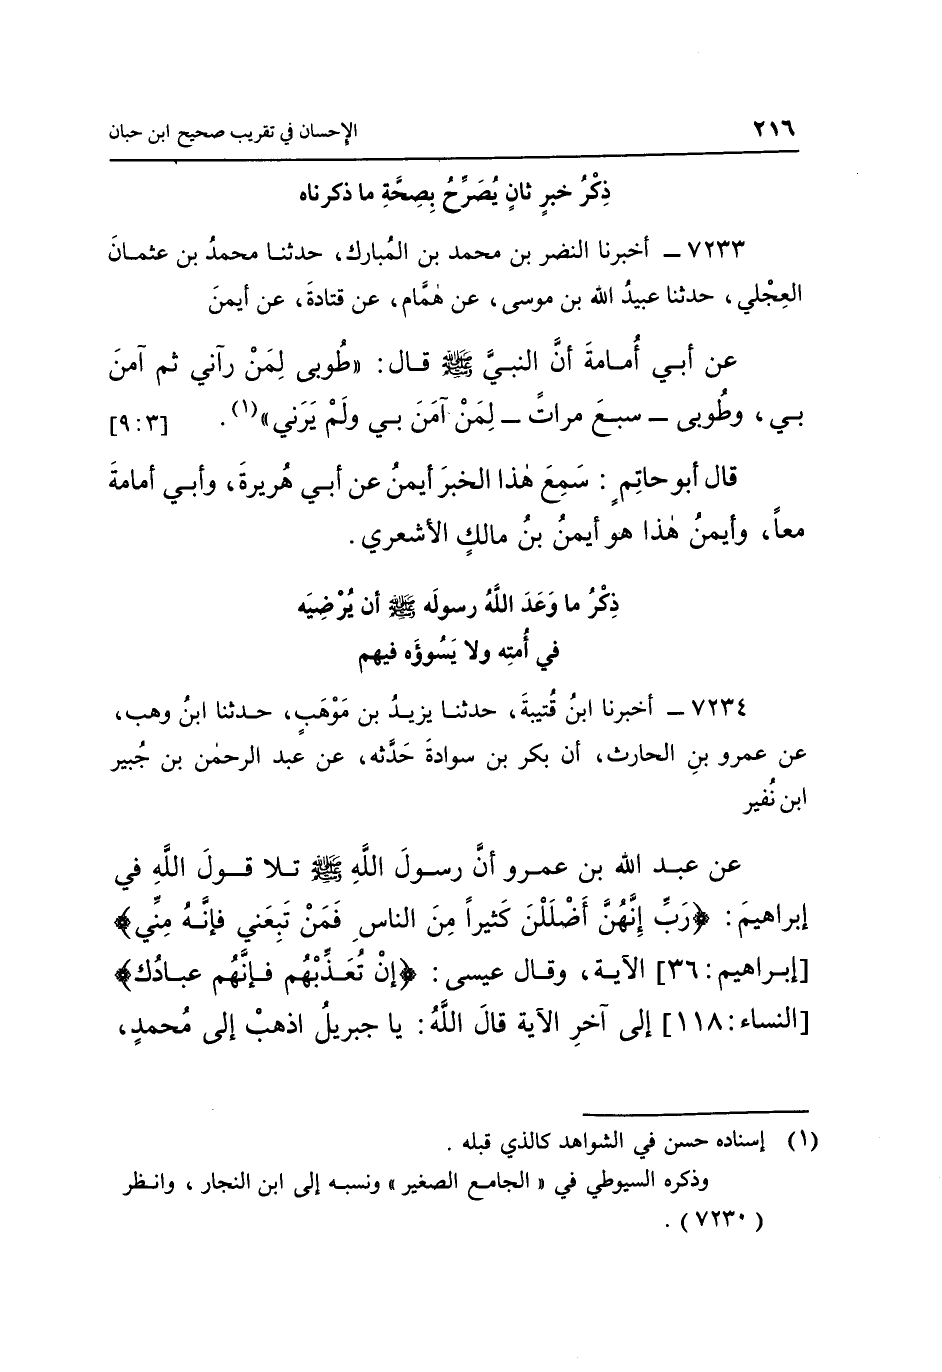 ٢١٦
الإحسان في تقريب صحيح ابن حبان
ذِكْرُ خبرٍ ثانٍ يُصَرِّحُ بِصِحَّةِ ما ذكرناه
٧٢٣٣ ــ أخبرنا النضر بن محمد بن المُبارك، حدثنا محمدُ بن عثمانَ
العِجْلي، حدثنا عبيدُ الله بن موسى، عن هَمَّام، عن قتادةَ، عن أيمنَ
عن أبي أُمامةَ أنَّ النبيَّ ﷺ قال: «طُوبى لِمَنْ رآني ثم آمنَ
بي، وطُوبى ــ سبعَ مراتٍ ــ لِمَنْ آمَنَ بي ولَمْ يَرَني»(١). [٣:٩]
قال أبو حاتِمٍ: سَمِعَ هٰذا الخبرَ أيمنُ عن أبي هُريرةَ، وأبي أمامةَ
معاً، وأيمنُ هٰذا هو أيمنُ بنُ مالكٍ الأشعري.
ذِكْرُ ما وَعَدَ اللَّهُ رسولَه ﷺ أن يُرْضِيَه
في أُمتِه ولا يَسُوؤَه فيهم
٧٢٣٤ ــ أخبرنا ابنُ قُتيبةَ، حدثنا يزيدُ بن مَوْهَبٍ، حدثنا ابنُ وهب،
عن عمرو بنِ الحارث، أن بكر بن سوادةَ حَدَّثه، عن عبد الرحمٰن بن جُبير
ابن نُفير
عن عبد الله بن عمرو أنَّ رسولَ اللَّهِ ﷺ تلا قولَ اللَّهِ في
إبراهيمَ: ﴿رَبِّ إِنَّهُنَّ أَضْلَلْنَ كَثيراً مِنَ الناسِ فَمَنْ تَبِعَني فإنَّهُ مِنِّي﴾
[إبراهيم:٣٦] الآية، وقال عيسى: ﴿إنْ تُعَذِّبْهُم فإنَّهُم عبادُك﴾
[النساء:١١٨] إلى آخرِ الآية قالَ اللَّهُ: يا جبريلُ اذهبْ إلى مُحمدٍ،
(١) إسناده حسن في الشواهد كالذي قبله .
وذكره السيوطي في «الجامع الصغير» ونسبه إلى ابن النجار ، وانظر
(٧٢٣٠) .